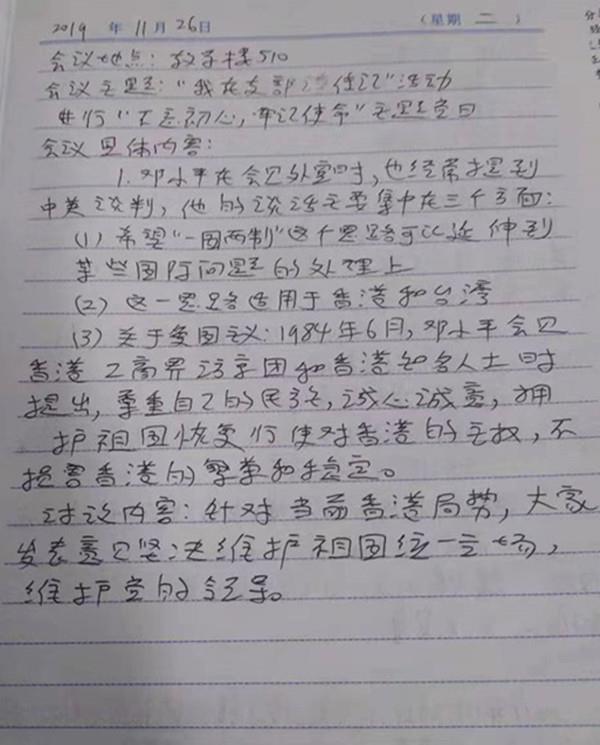 2019 年 11 月 26 日 (星期 二 )
会议地点: 教学楼510
会议主题: "我在支部 活动
进行"不忘初心,牢记使命"主题党日
会议具体内容:
1. 邓小平在会见外宾时,也经常提到
中英谈判,他的谈话主要集中在三个方面:
(1) 希望"一国两制"这个思路可以延伸到
某些国际问题的处理上
(2) 这一思路适用于香港和台湾
(3) 关于爱国主义: 1984年6月,邓小平会见
香港工商界访京团和香港知名人士时
提出,尊重自己的民族,诚心诚意,拥
护祖国恢复行使对香港的主权,不
损害香港的繁荣和稳定。
讨议内容: 针对当前香港局势,大家
发表意见坚决维护祖国统一立场,
维护党的领导。